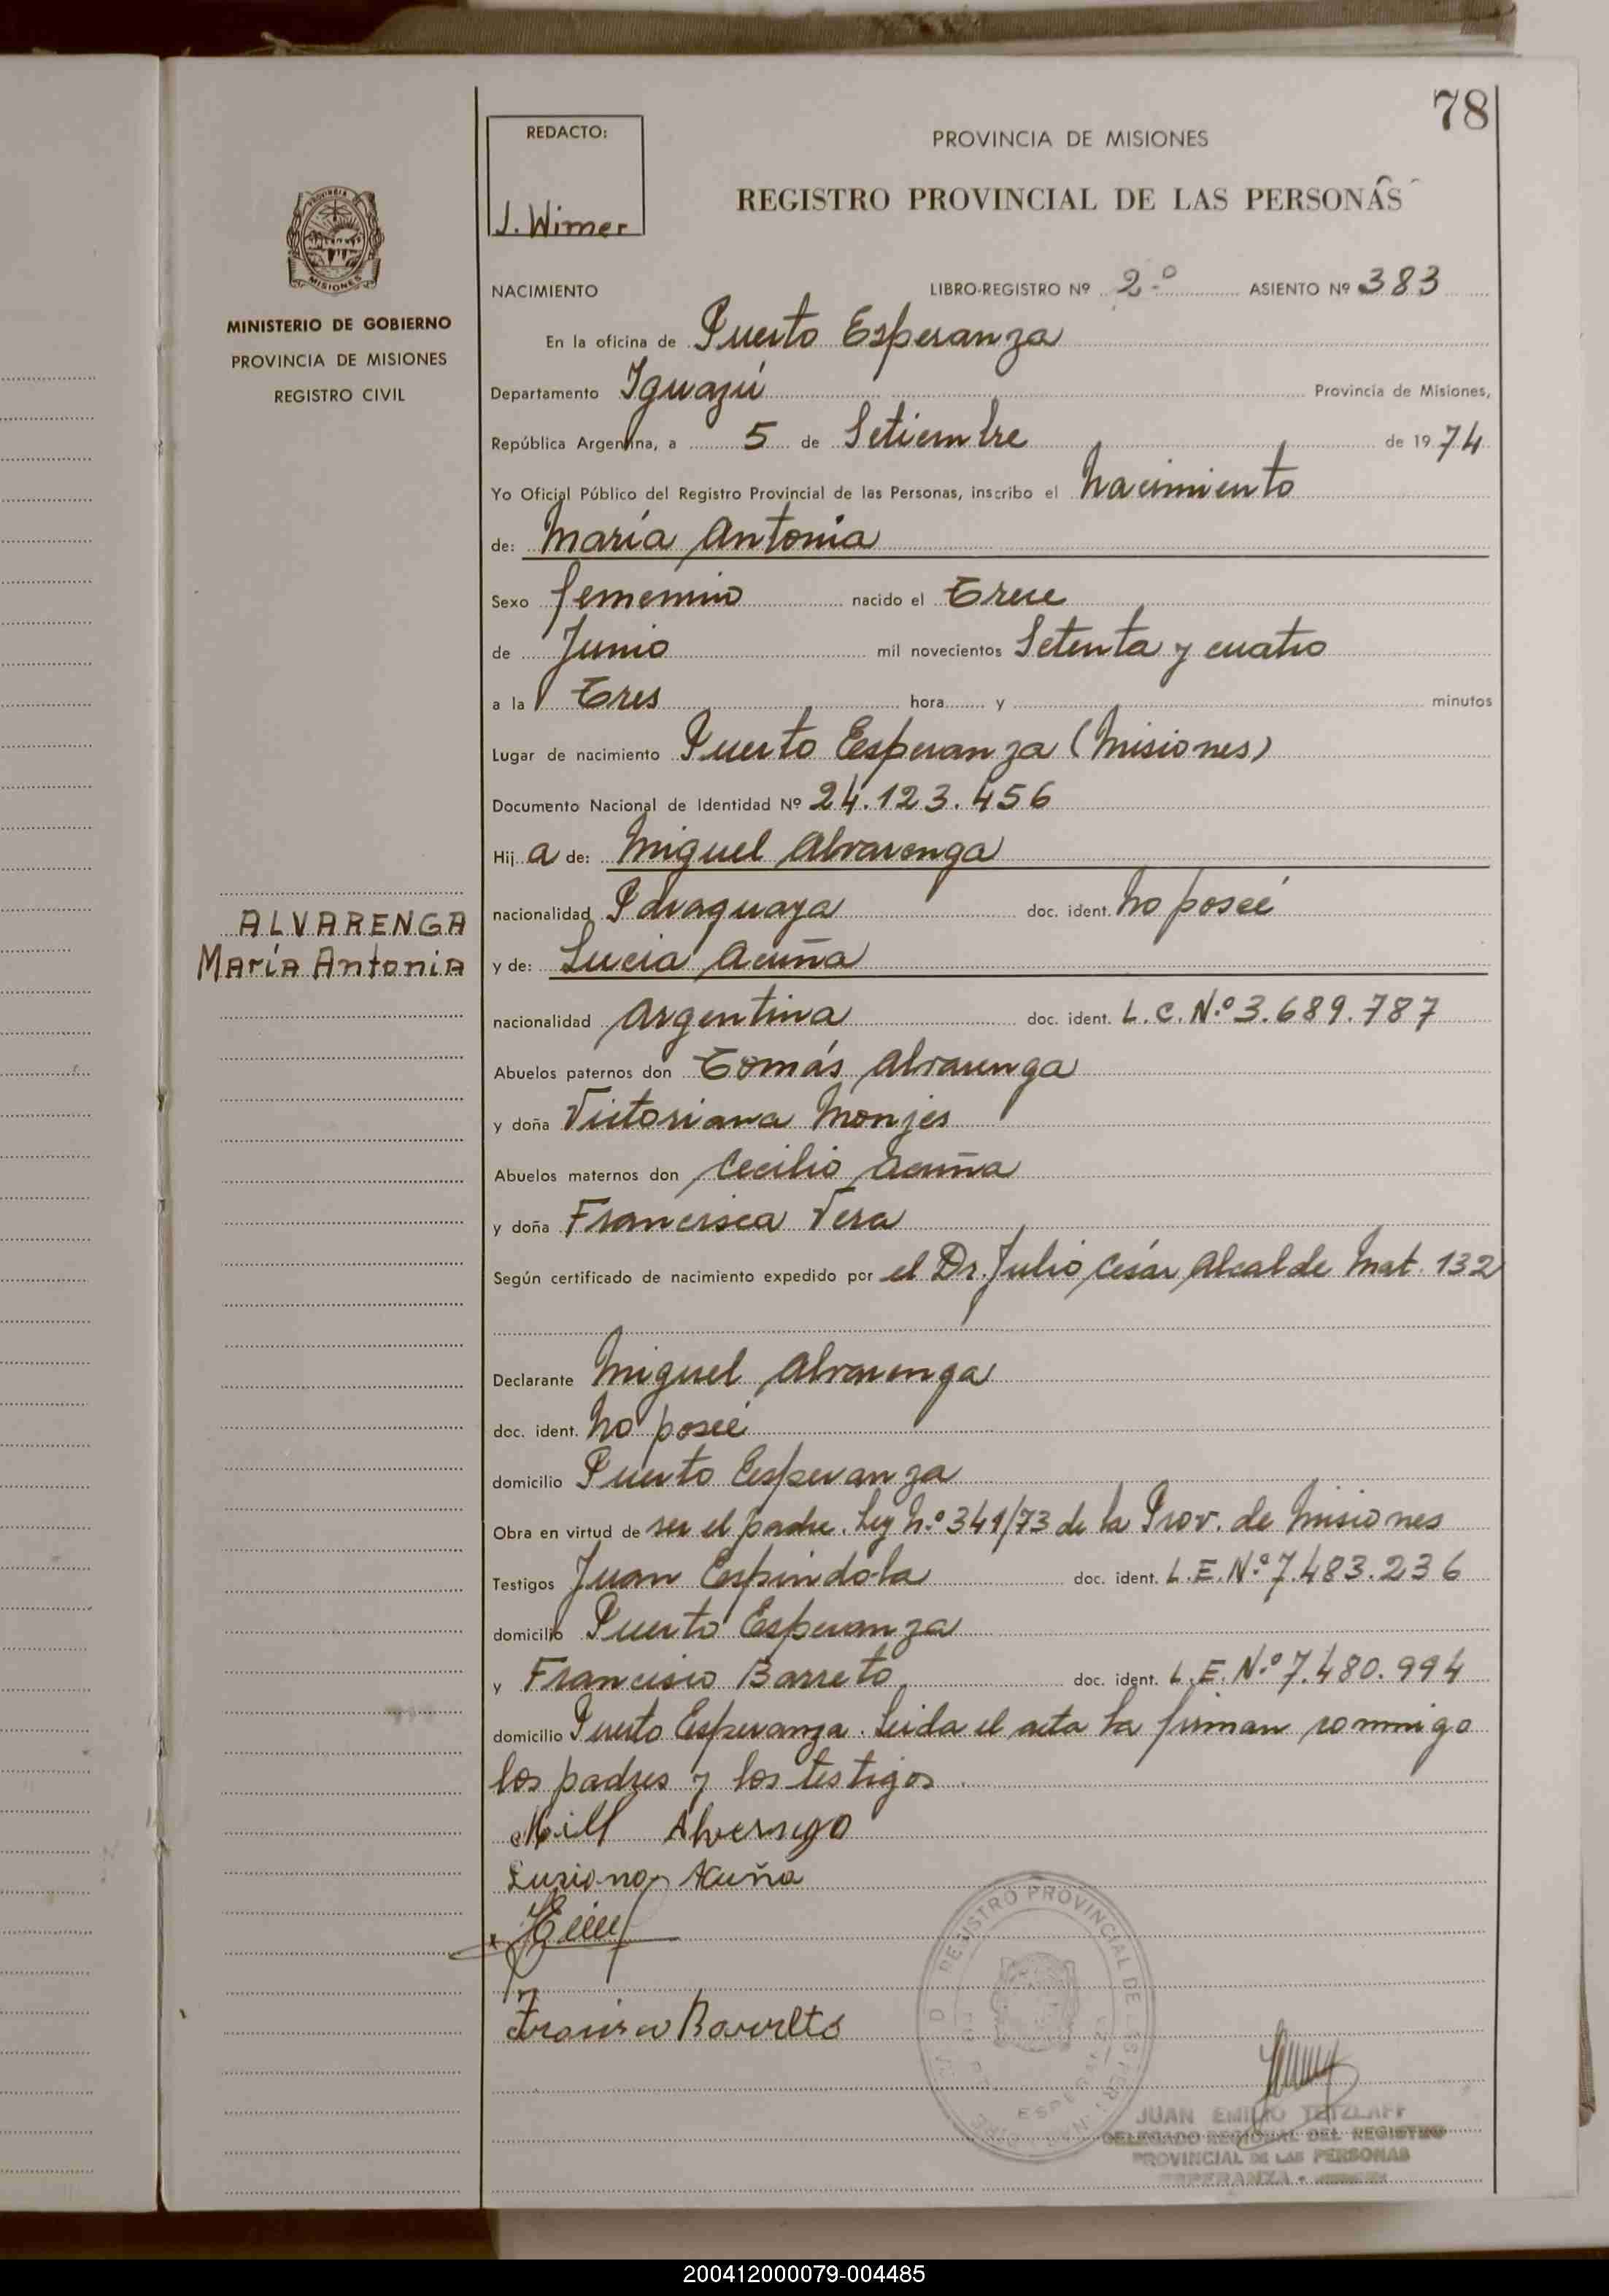 78
REDACTO:
J. Wimer
PROVINCIA DE MISIONES
REGISTRO PROVINCIAL DE LAS PERSONAS
PROVINCIA DE
MISIONES
MINISTERIO DE GOBIERNO
PROVINCIA DE MISIONES
REGISTRO CIVIL
NACIMIENTO LIBRO-REGISTRO Nº 2º ASIENTO Nº 383
En la oficina de Puerto Esperanza
Departamento Iguazú Provincia de Misiones,
República Argentina, a 5 de Setiembre de 1974
Yo Oficial Público del Registro Provincial de las Personas, inscribo el Nacimiento
de: María Antonia
Sexo femenino nacido el Trece
de Junio mil novecientos Setenta y cuatro
a la Tres hora y minutos
Lugar de nacimiento Puerto Esperanza (Misiones)
Documento Nacional de Identidad Nº 24.123.456
Hij a de: Miguel Alvarenga
ALVARENGA
María Antonia
nacionalidad Paraguaya doc. ident. No poseé
y de: Lucia Acuña
nacionalidad Argentina doc. ident. L.C. N.º 3.689.787
Abuelos paternos don Tomás Alvarenga
y doña Victoriana Monjes
Abuelos maternos don Cecilio Acuña
y doña Francisca Vera
Según certificado de nacimiento expedido por el Dr. Julio César Alcalde Mat. 132
Declarante Miguel Alvarenga
doc. ident. No poseé
domicilio Puerto Esperanza
Obra en virtud de ser el padre. Ley N.º 341/73 de la Prov. de Misiones
Testigos Juan Espindola doc. ident. L.E. N.º 7.483.236
domicilio Puerto Esperanza
y Francisco Barreto doc. ident. L.E. N.º 7.480.994
domicilio Puerto Esperanza. Leida el acta la firman conmigo
los padres y los testigos.
Acuña
REGISTRO PROVINCIAL DE LAS
JUAN EMILIO TETZLAFF
DELEGADO REGIONAL DEL REGISTRO
PROVINCIAL DE LAS PERSONAS
ESPERANZA
200412000079-004485